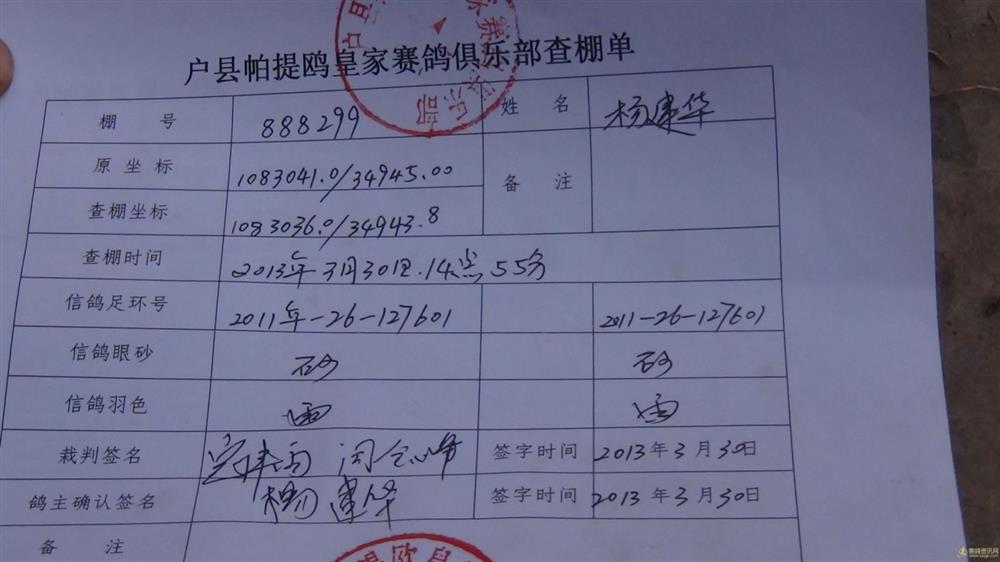 户县帕提鸥皇家赛鸽俱乐部查棚单
棚 号 888299 姓 名 杨建华
原坐标 1083041.0/34945.00 备 注
查棚坐标 1083036.0/34943.8
查棚时间 2013年3月30日.14点55分
信鸽足环号 2011年-26-127601 2011-26-127601
信鸽眼砂 砂 砂
信鸽羽色 雨 雨
裁判签名 签字时间 2013年3月30日
鸽主确认签名 杨建华 签字时间 2013年3月30日
备 注
赛鸽资讯网